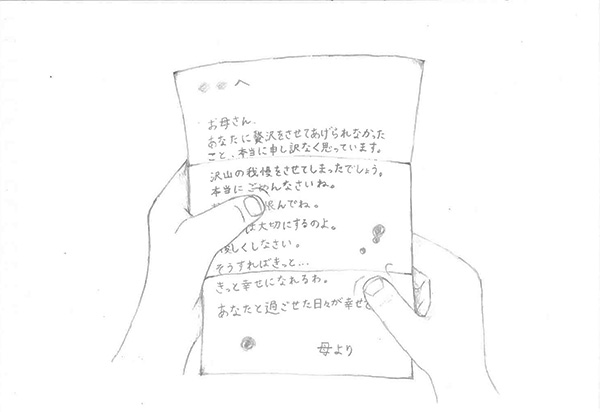 へ
お母さん、
あなたに贅沢をさせてあげられなかった
こと、本当に申し訳なく思っています。
沢山の我慢をさせてしまったでしょう。
本当にごめんなさいね。
恨んでね。
は大切にするのよ。
しくしなさい。
そうすればきっと…
きっと幸せになれるわ。
あなたと過ごせた日々が幸せ
母より